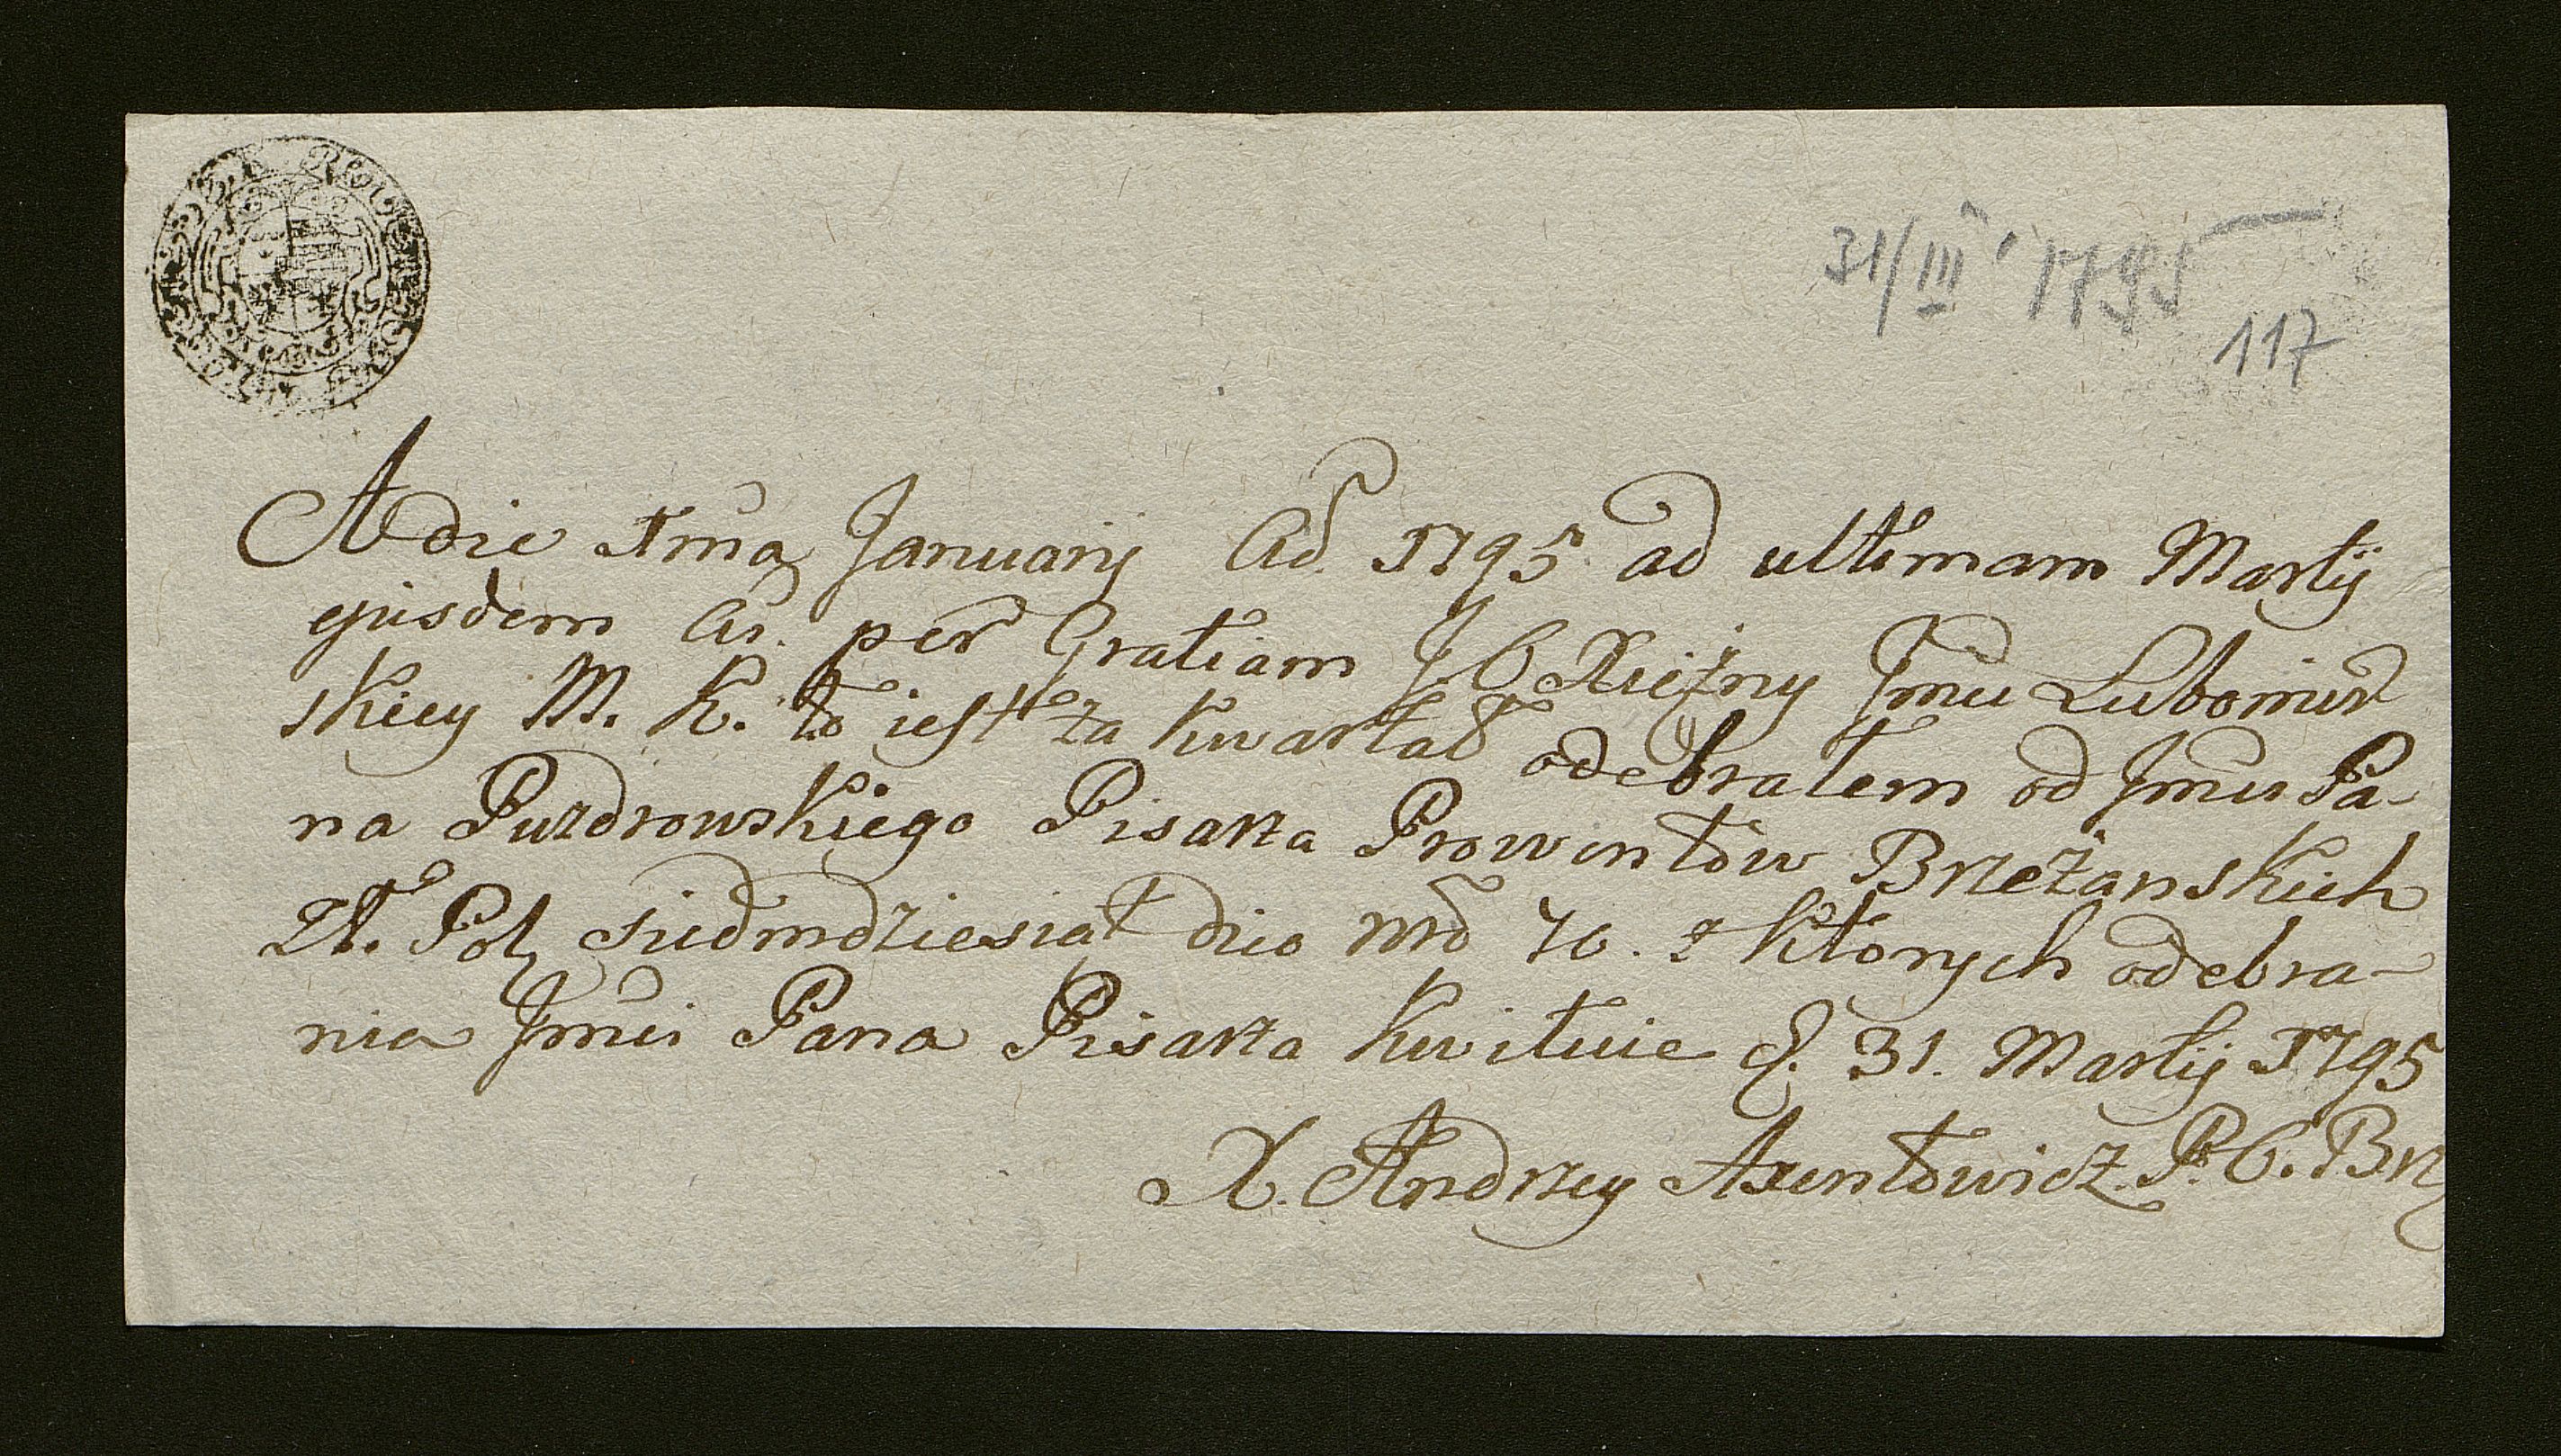 31/III 1795
117
A die 1ma Januarij Ao 1795 ad ultimam Martij
ejusdem Ai. per Gratiam J. O. Xiężny Jmci Lubomir
skiey M. K. to iest za kwartał odebrałem od Jmci Pa-
na Puzdrowskiego Pisarza Prowentow Brzeżanskich
Zł. Pol siedmdziesiąt dico nro 70. z ktorych odebra-
nia Jmci Pana Pisarza kwituie d. 31. Martij 1795
X. Andrzey Axentowicz P. O. Brz